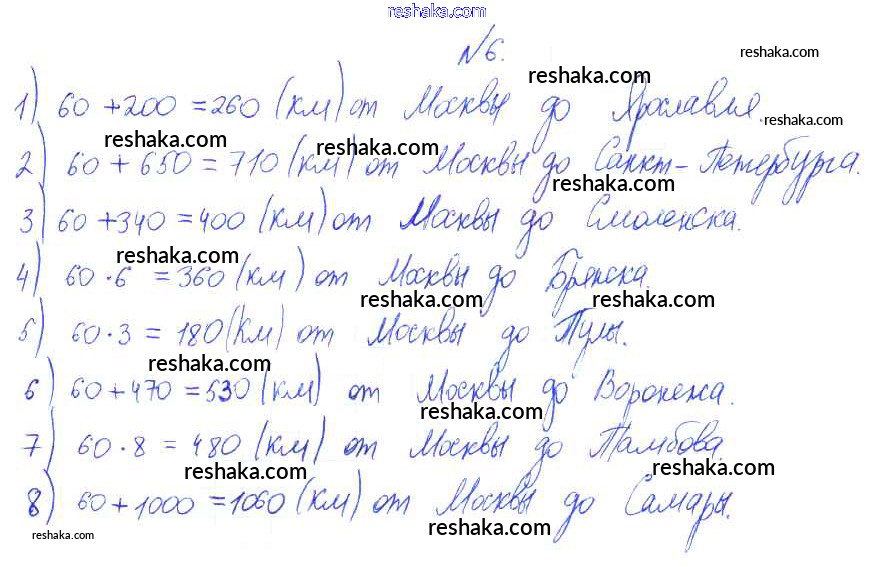 reshaka.com
№6.
reshaka.com
reshaka.com
1) 60 + 200 = 260 (км) от Москвы до Ярославля.
reshaka.com
reshaka.com
reshaka.com
2) 60 + 650 = 710 (км) от Москвы до Санкт-Петербурга.
reshaka.com
3) 60 + 340 = 400 (км) от Москвы до Смоленска.
reshaka.com
4) 60 · 6 = 360 (км) от Москвы до Брянска.
reshaka.com
reshaka.com
5) 60 · 3 = 180 (км) от Москвы до Тулы.
reshaka.com
6) 60 + 470 = 530 (км) от Москвы до Воронежа.
reshaka.com
7) 60 · 8 = 480 (км) от Москвы до Тамбова.
reshaka.com
reshaka.com
8) 60 + 1000 = 1060 (км) от Москвы до Самары.
reshaka.com
reshaka.com